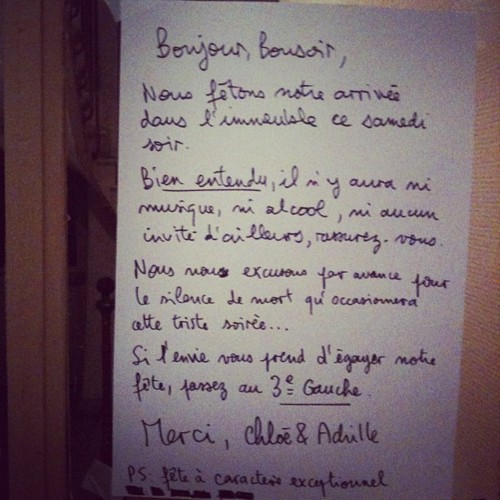 Bonjour, Bonsoir,
Nous fêtons notre arrivée
dans l'immeuble ce samedi
soir.
Bien entendu, il n'y aura ni
musique, ni alcool, ni aucun
invité d'ailleurs, rassurez-vous.
Nous nous excusons par avance pour
le silence de mort qu'occasionnera
cette triste soirée...
Si l'envie vous prend d'égayer notre
fête, passez au 3e Gauche.
Merci, Chloë &
PS: fête à caractère exceptionnel